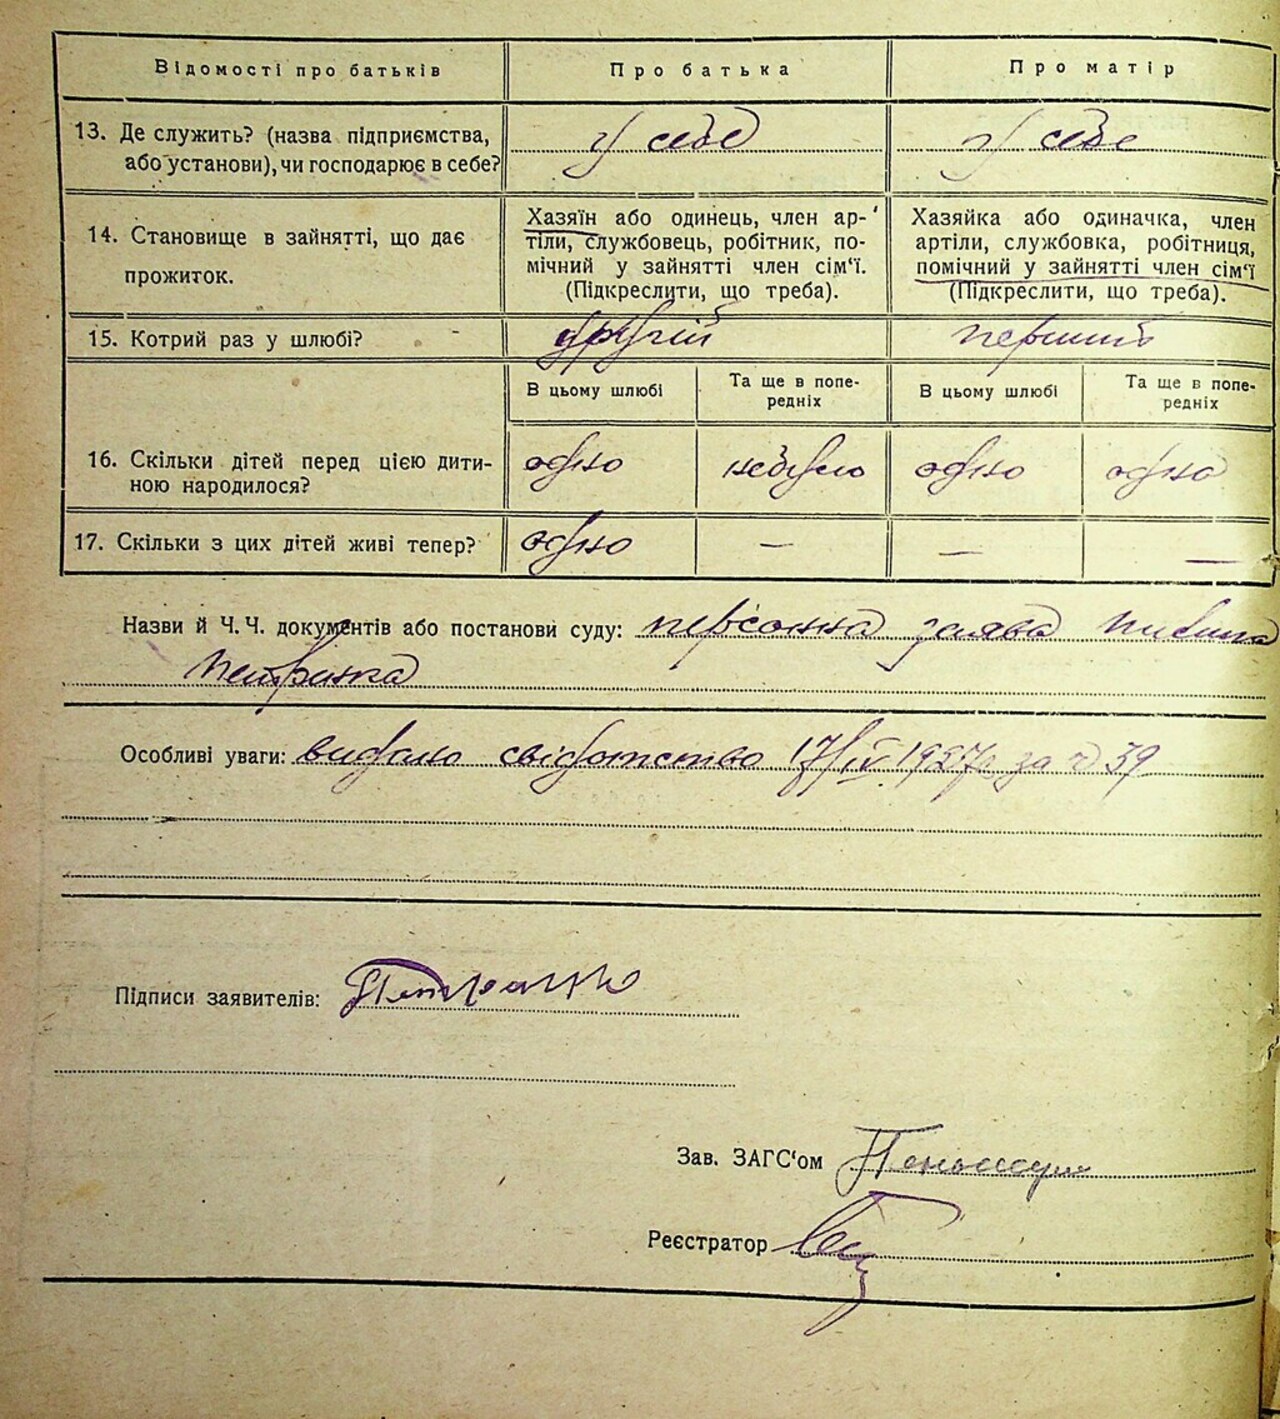 Відомості про батьків
Про батька
Про матір
13. Де служить? (назва підприємства, або установи), чи господарює в себе?
у себе
у себе
14. Становище в зайнятті, що дає прожиток.
Хазяїн або одинець, член ар-
тіли, службовець, робітник, по-
мічний у зайнятті член сім‘ї.
(Підкреслити, що треба).
Хазяйка або одиначка, член
артіли, службовка, робітниця,
помічний у зайнятті член сім‘ї
(Підкреслити, що треба).
15. Котрий раз у шлюбі?
другій
перший
В цьому шлюбі
Та ще в попе-
редніх
В цьому шлюбі
Та ще в попе-
редніх
16. Скільки дітей перед цією дити-
ною народилося?
одно
небуло
одно
одно
17. Скільки з цих дітей живі тепер?
одно
—
—
—
Назви й Ч. Ч. документів або постанови суду: персонна заява
Петренка
Особливі уваги: видано свідотство 17/IV 1927р за № 39
Підписи заявителів:
Зав. ЗАГС‘ом
Реєстратор